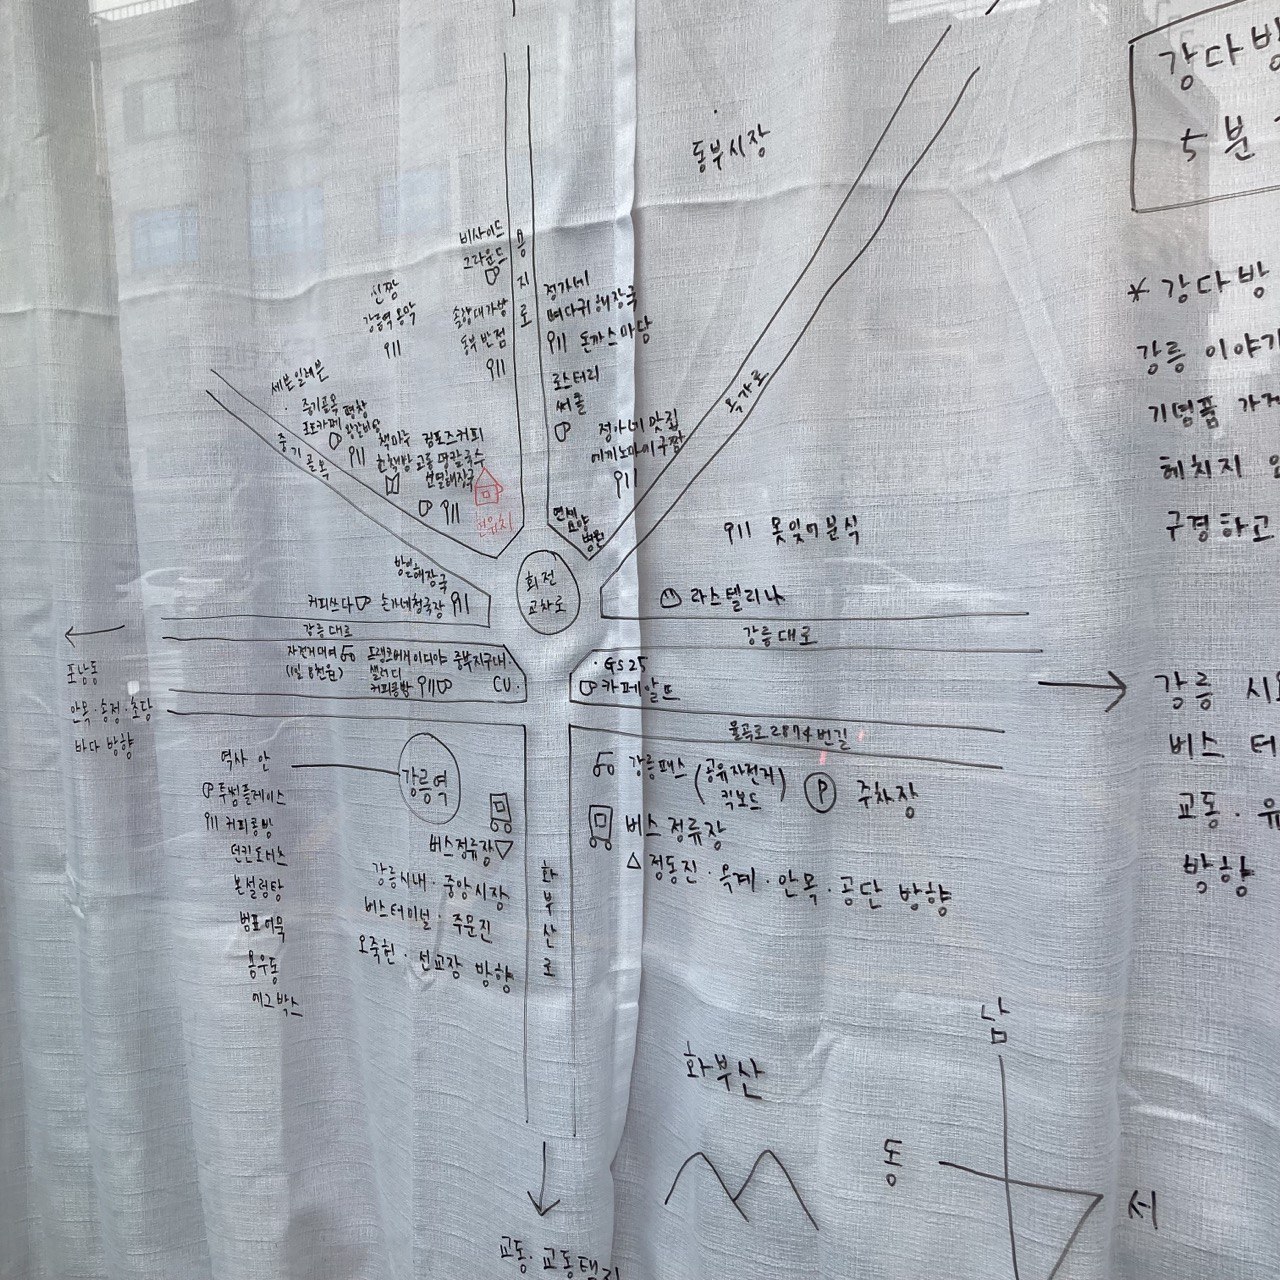 동부시장
비사이드
그라운드
용지로
신짱
강릉역 용막
911
솔향대가방
동부반점
911
정가네
뼈다귀해장국
911 돈까스마당
로스터리
써클
정아네 맛집
에끼노마이구짬
911
옥가로
세븐일레븐
중기골목
포토카페
평창
왕갈비탕
911
중기골목
책마루
한책방
컴포즈커피
교동명칼국수
선열해장국
911
현위치
연세
요양
병원
회전
교차로
방일해장국
커피쓰다
손가네청국장 911
강릉대로
911 못잊어분식
라스텔리나
강릉대로
자전거대여
(1일 8천원)
프랭크버거 이디야 중부지구대
샐러디
커피콩방 911
CU
· GS25
카페알뜨
율곡로 2874번길
포남동
안목·송정·초당
바다 방향
강릉역
역사 안
투썸플레이스
911 커피콩방
던킨도너츠
본설렁탕
범표어묵
용우동
에그박스
버스정류장▽
강릉시내·중앙시장
버스터미널·주문진
오죽헌·선교장 방향
화부산로
강릉패스 (공유자전거
킥보드)
Ⓟ 주차장
버스정류장
△정동진·옥계·안목·공단 방향
화부산
남
동
서
강다방
5분
* 강다방
강릉 이야기
기념품 가게
헤치지
구경하고
강릉 시
버스 터
교동·유
방향
교동·교동택지